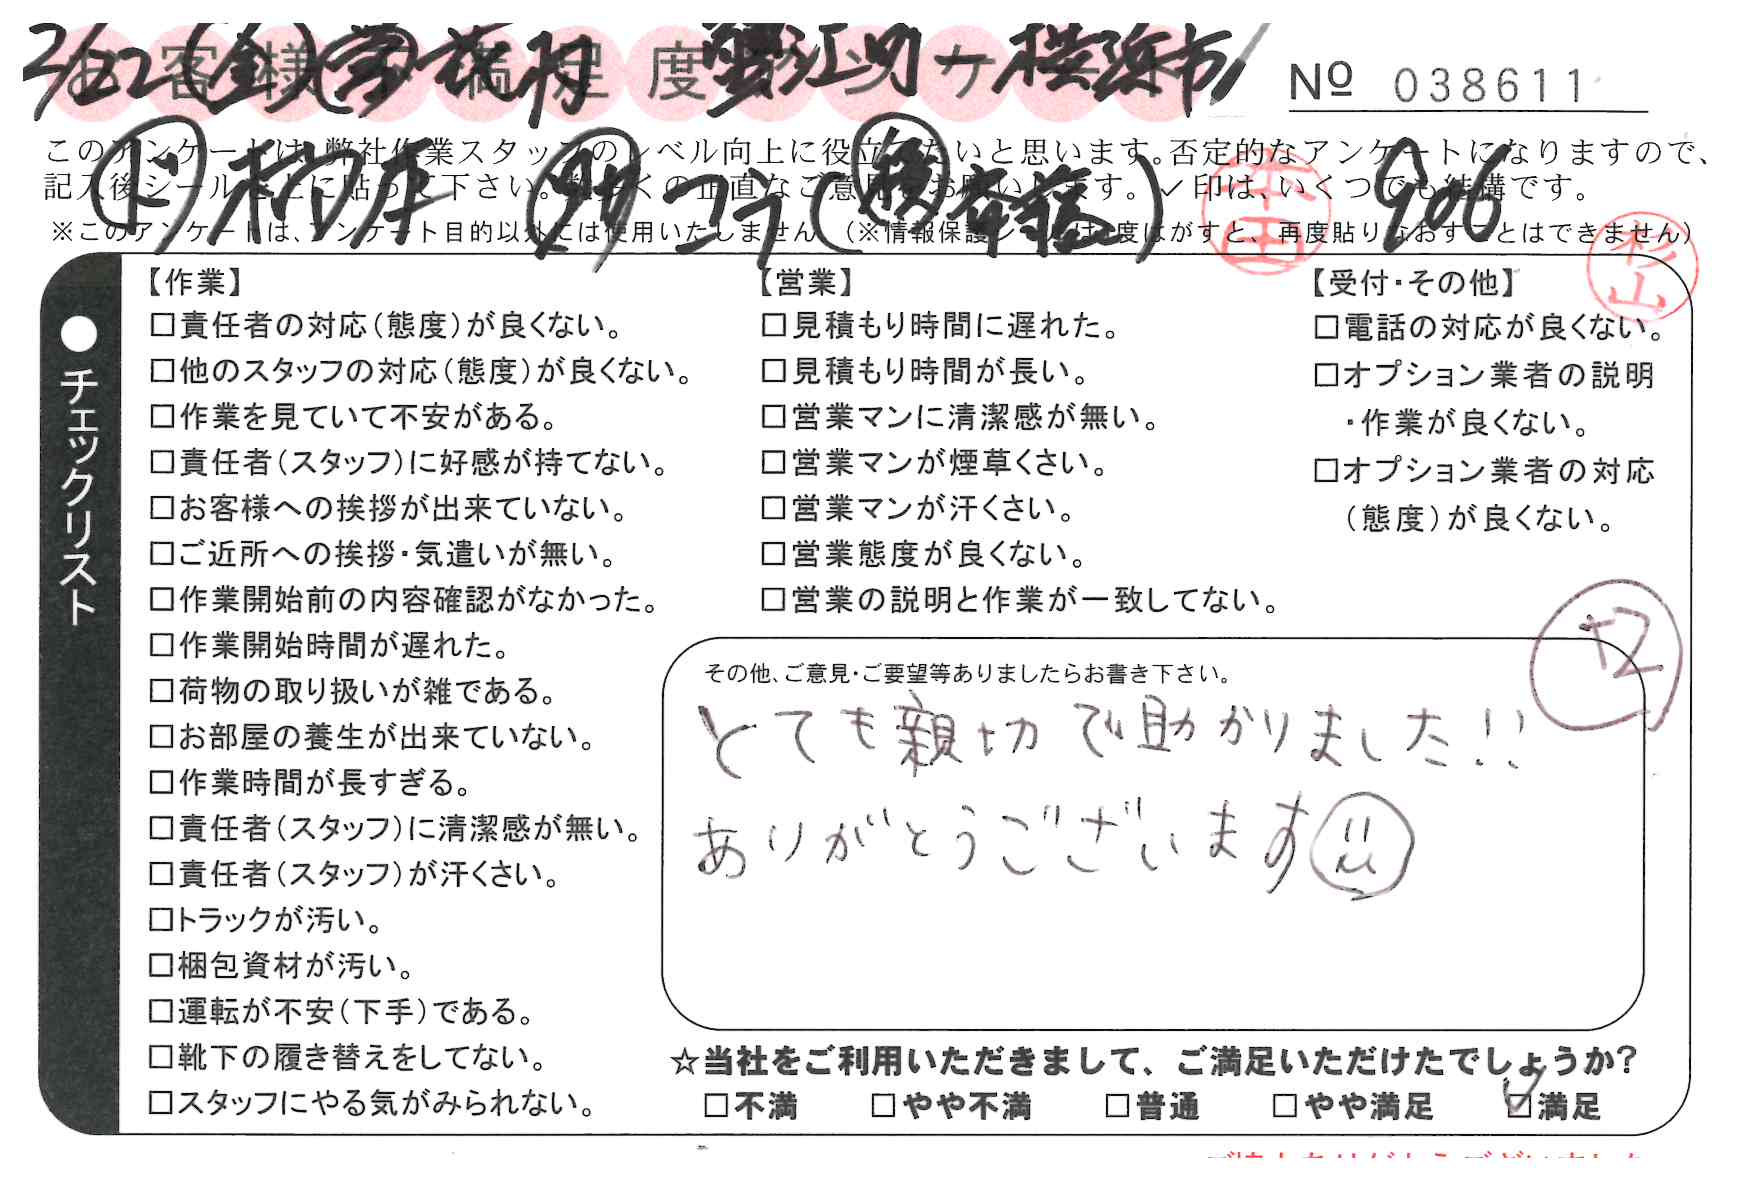 お客様ご満足度アンケート
2/22(金) 蟹江町→横浜市
№ 038611
このアンケートは、弊社作業スタッフのレベル向上に役立てたいと思います。否定的なアンケートになりますので、
記入後シールを上に貼って下さい。数多くの正直なご意見をお願いします。✓印は、いくつでも結構です。
※このアンケートは、アンケート目的以外には使用いたしません (※情報保護シールは1度はがすと、再度貼りなおすことはできません)
906
杉山
●チェックリスト
【作業】
□責任者の対応(態度)が良くない。
□他のスタッフの対応(態度)が良くない。
□作業を見ていて不安がある。
□責任者(スタッフ)に好感が持てない。
□お客様への挨拶が出来ていない。
□ご近所への挨拶・気遣いが無い。
□作業開始前の内容確認がなかった。
□作業開始時間が遅れた。
□荷物の取り扱いが雑である。
□お部屋の養生が出来ていない。
□作業時間が長すぎる。
□責任者(スタッフ)に清潔感が無い。
□責任者(スタッフ)が汗くさい。
□トラックが汚い。
□梱包資材が汚い。
□運転が不安(下手)である。
□靴下の履き替えをしてない。
□スタッフにやる気がみられない。
【営業】
□見積もり時間に遅れた。
□見積もり時間が長い。
□営業マンに清潔感が無い。
□営業マンが煙草くさい。
□営業マンが汗くさい。
□営業態度が良くない。
□営業の説明と作業が一致してない。
【受付・その他】
□電話の対応が良くない。
□オプション業者の説明
・作業が良くない。
□オプション業者の対応
(態度)が良くない。
+2
その他、ご意見・ご要望等ありましたらお書き下さい。
とても親切で助かりました!!
ありがとうございます
☆当社をご利用いただきまして、ご満足いただけたでしょうか?
□不満 □やや不満 □普通 □やや満足 ☑満足